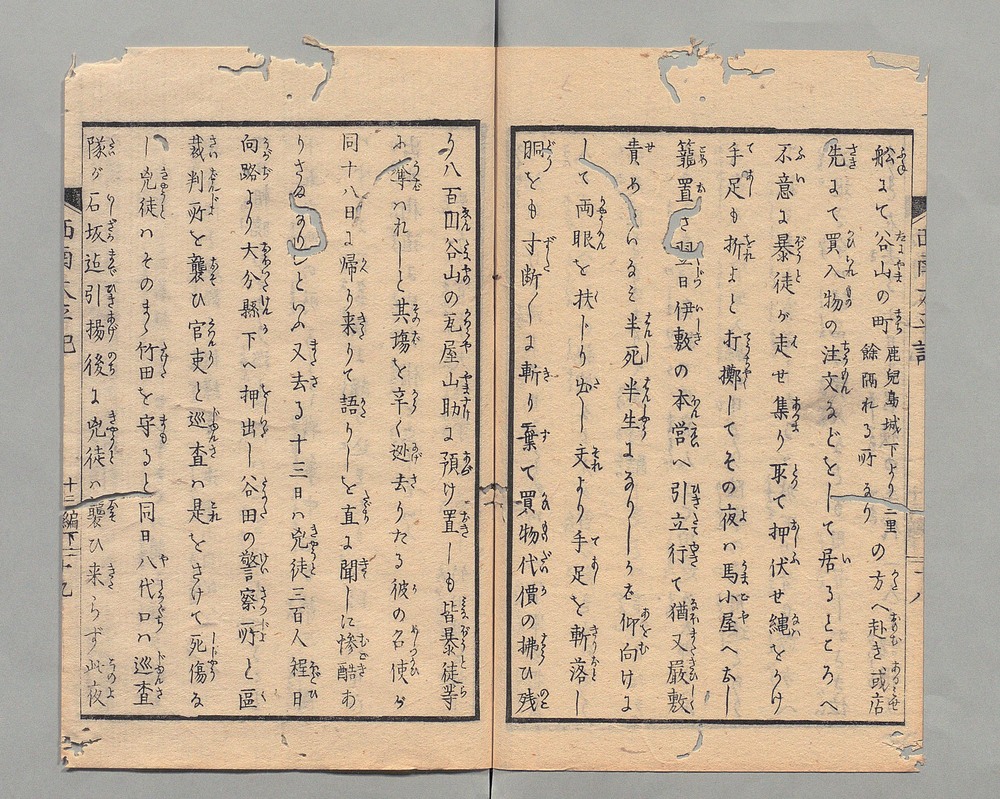 舩にて谷山の町 鹿児島城下より二里
餘隔れる所なり の方へ赴き或店
先にて買入物の注文などをして居るところへ
不意に暴徒が走せ集り取て押伏せ縄をかけ
手足も折よと打擲してその夜ハ馬小屋へ
籠置き翌日伊敷の本営へ引立行て猶又厳敷
責めけるに半死半生になりしかを仰向けに
して両眼を抉じり出し夫より手足を斬落し
胴をも寸断〱に斬り棄て買物代價の拂ひ残
り八百四谷山の瓦屋山助に預け置しも皆暴徒等
に奪ハれしと其塲を辛く迯去りたる彼の召使が
同十八日に帰り来りて語りしを直に聞しに惨酷あ
りさまなりといふ又去る十三日ハ兇徒三百人程日
向路より大分縣下へ押出し谷田の警察所と區
裁判所を襲ひ官吏と巡査ハ是をさけて死傷な
し兇徒ハそのまゝ竹田を守ると同日八代口ハ巡査
隊が石坂迠引揚後に兇徒ハ襲ひ来らず此夜
西南太平記
十二編下
十九